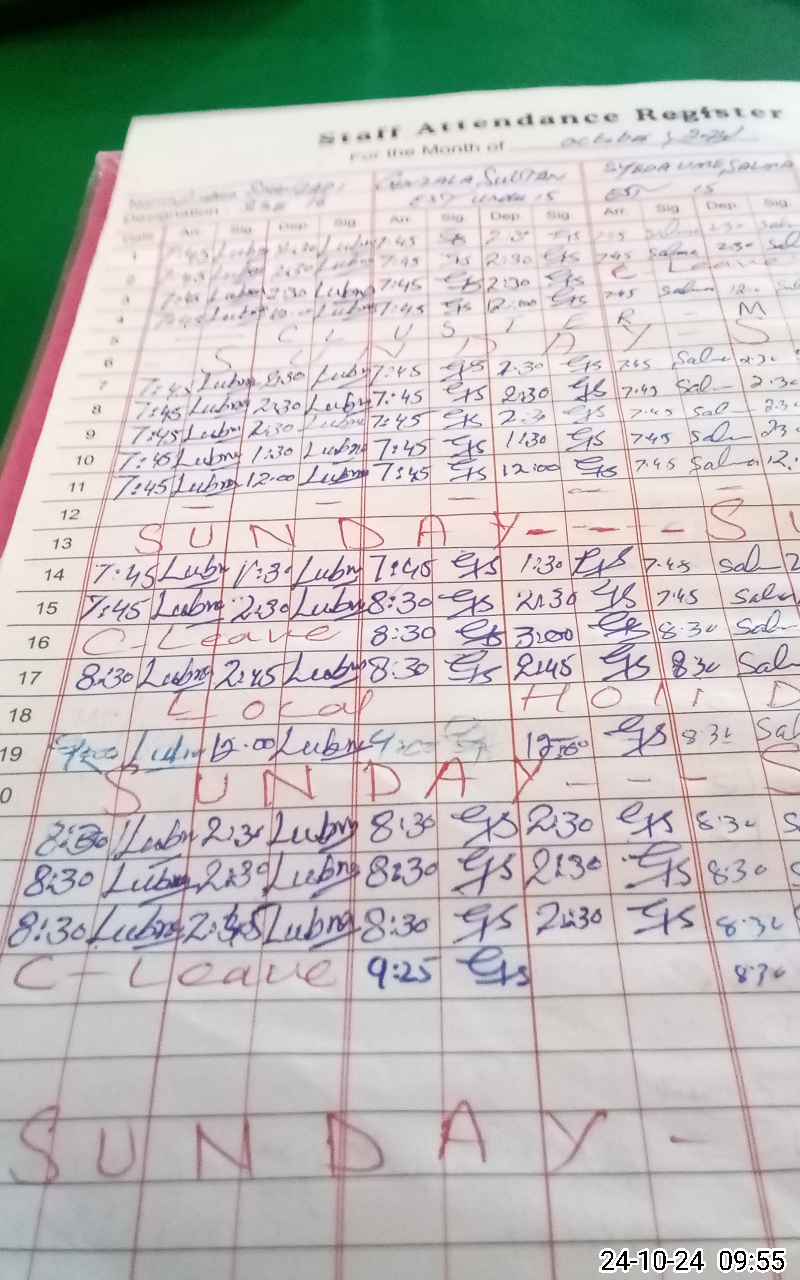 Staff Attendance Register
For the Month of October, 2024
Sultan SYEDA UME SALMA
EST 15
Arr. Sig Dep. Sig Arr. Sig Dep. Sig Arr. Sig Dep. Sig
1 7:45 Lubn 2:30 Lubn 7:45 GS 2:30 GS 7:45 Salma 2:30 Sal
2 7:45 Lubn 2:30 Lubn 7:45 GS 2:30 GS 7:45 Salma 2:30 Sal
3 7:45 Lubn 2:30 Lubn 7:45 GS 2:30 GS C Leave
4 7:45 Lubn Lubn 7:45 GS 12:00 GS 7:45 Salma 12
5 C L U S T E R - M
6 S U N D A Y - S
7 7:45 Lubna 2:30 Lubn 7:45 GS 2:30 GS 7:45 Salm 2:30
8 7:45 Lubna 2:30 Lubna 7:45 GS 2:30 GS 7:45 Sal 2:30
9 7:45 Lubna 2:30 Lubna 7:45 GS 2:30 GS 7:45 Sal 2:3
10 7:45 Lubna 1:30 Lubna 7:45 GS 1:30 GS 7:45 Sal
11 7:45 Lubna 12:00 Lubna 7:45 GS 12:00 GS 7:45 Salma 12.
12 - - - - -
13 S U N D A Y - - - - S U
14 7:45 Lubn 1:30 Lubna 7:45 GS 1:30 GS 7:45 Sal 2
15 7:45 Lubna 2:30 Lubna 8:30 GS 2:30 GS 7:45 Salm
16 C-Leave 8:30 GS 3:00 GS 8:30 Sal
17 8:30 Lubna 2:45 Lubna 8:30 GS 2:45 GS 8:30 Sal
18 Local HOLI D
19 Lubna 12:00 Lubna 12:00 GS 8:30 Sal
0 S U N D A Y - - - S
8:30 Lubn 2:30 Lubna 8:30 GS 2:30 GS 8:30 S
8:30 Lubna 2:30 Lubna 8:30 GS 2:30 GS 8:30 S
8:30 Lubna 2:45 Lubna 8:30 GS 2:30 GS 8:30
C-Leave 9:25 GS 8:30
S U N D A Y -
24-10-24 09:55